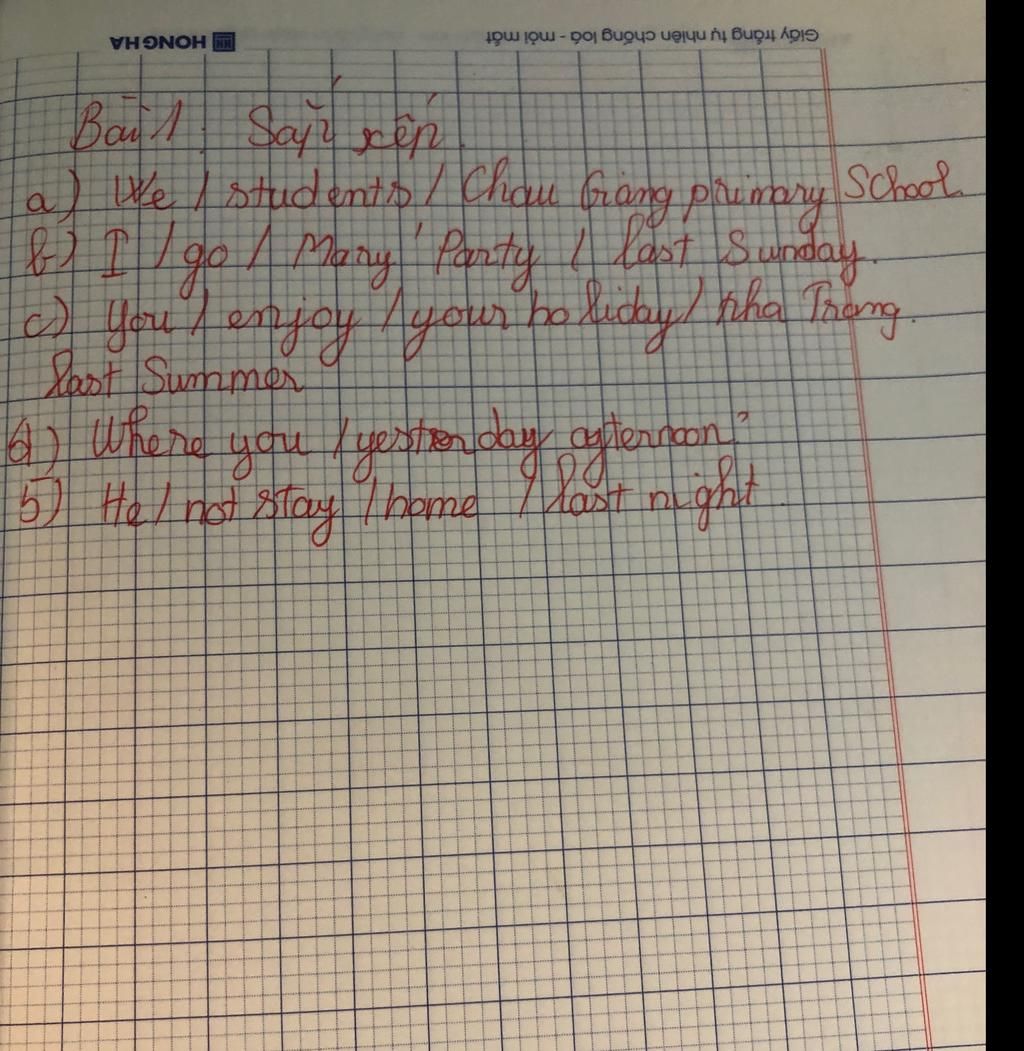 HONG HA
Giấy trắng tự nhiên chống loá - mỏi mắt
Bài 1. Sắp xếp.
a) We / students / Chau Giang primary School
b) I / go / Mary' Party / last Sunday.
c) you / enjoy / your holiday / nha Trang.
last Summer
d) Where you / yesterday agternoon?
5) He / not stay / home / last night.